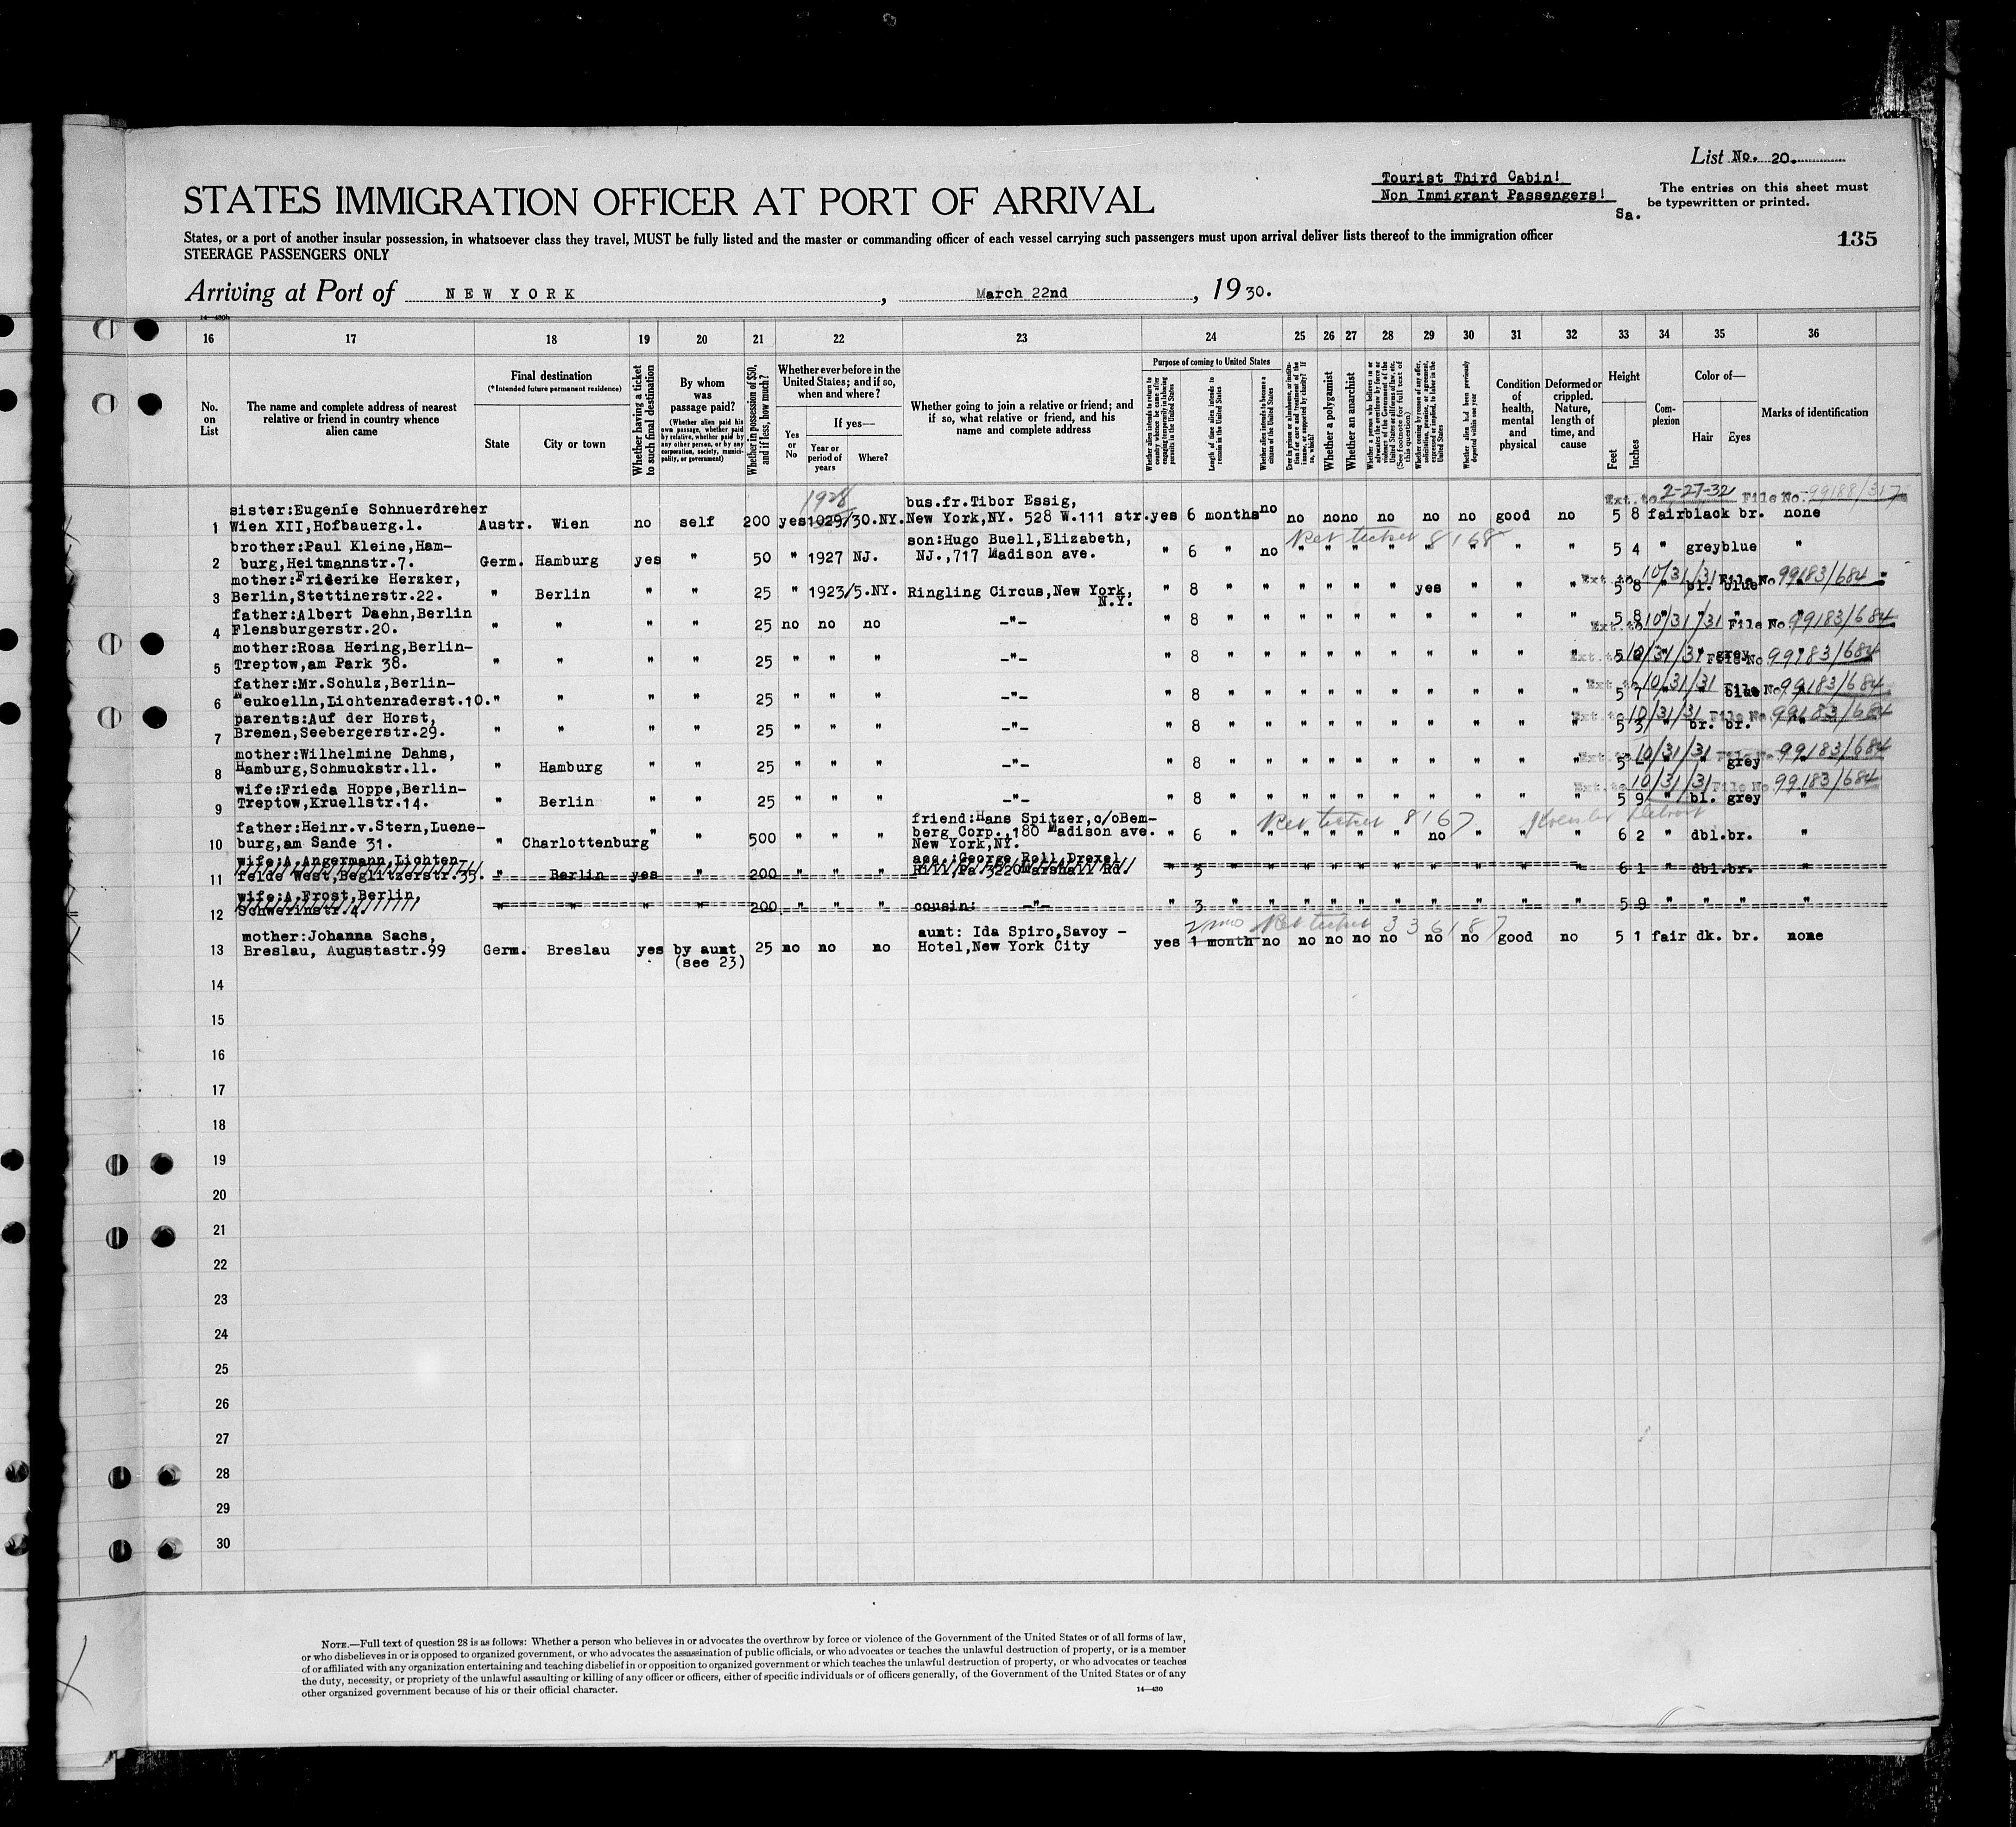 List No. 20.
Tourist Third Cabin!
Non Immigrant Passengers!
Sa.
The entries on this sheet must
be typewritten or printed.
135
STATES IMMIGRATION OFFICER AT PORT OF ARRIVAL
States, or a port of another insular possession, in whatsoever class they travel, MUST be fully listed and the master or commanding officer of each vessel carrying such passengers must upon arrival deliver lists thereof to the immigration officer
STEERAGE PASSENGERS ONLY
Arriving at Port of NEW YORK, March 22nd, 1930.
14—430b
16 17 18 19 20 21 22 23 24 25 26 27 28 29 30 31 32 33 34 35 36
No. on List
The name and complete address of nearest relative or friend in country whence alien came
Final destination
(*Intended future permanent residence)
State
City or town
Whether having a ticket to such final destination
By whom was passage paid?
(Whether alien paid his own passage, whether paid by relative, whether paid by any other person, or by any corporation, society, municipality, or government)
Whether in possession of $50, and if less, how much?
Whether ever before in the United States; and if so, when and where?
Yes or No
If yes—
Year or period of years
Where?
Whether going to join a relative or friend; and if so, what relative or friend, and his name and complete address
Purpose of coming to United States
Whether alien intends to return to country whence he came after engaging temporarily in laboring pursuits in the United States
Length of time alien intends to remain in the United States
Whether alien intends to become a citizen of the United States
Ever in prison or almshouse, or institution for care and treatment of the insane, or supported by charity? If so, which?
Whether a polygamist
Whether an anarchist
Whether a person who believes in or advocates the overthrow by force or violence of the Government of the United States or all forms of law, etc. (See footnote for full text of this question)
Whether coming by reason of any offer, solicitation, promise, or agreement, expressed or implied, to labor in the United States
Whether alien had been previously deported within one year
Condition of health, mental and physical
Deformed or crippled. Nature, length of time, and cause
Height
Feet
Inches
Complexion
Color of—
Hair
Eyes
Marks of identification
1928
Ext. to 2-27-32 File No. 99188/317
1 sister:Eugenie Schnuerdreher
Wien XII,Hofbauerg.1. Austr. Wien no self 200 yes 1029/30.NY. bus.fr.Tibor Essig,
New York,NY. 528 W.111 str. yes 6 months no no no no no no no good no 5 8 fair black br. none
Ret ticket 8168
2 brother:Paul Kleine,Ham-
burg,Heitmannstr.7. Germ. Hamburg yes " 50 " 1927 NJ. son:Hugo Buell,Elizabeth,
NJ.,717 Madison ave. " 6 " no " " " " " " " " 5 4 " grey blue "
Ext. to 10/31/31 File No 99183/684
3 mother:Friderike Herzker,
Berlin,Stettinerstr.22. " Berlin " " 25 " 1923/5.NY. Ringling Circus,New York,
N.Y. " 8 " " " " " " yes " " " 5 8 " bl. blue "
4 father:Albert Daehn,Berlin
Flensburgerstr.20. " " " " 25 no no no -"- " 8 " " " " " " " " " " 5 8 " " " "
Ext. to 10/31/31 File No 99183/684
5 mother:Rosa Hering,Berlin-
Treptow,am Park 38. " " " " 25 " " " -"- " 8 " " " " " " " " " " 5 " " grey "
Ext. to 10/31/31 File No. 99183/684
6 father:Mr.Schulz,Berlin-
Neukoelln,Lichtenraderst.10. " " " " 25 " " " -"- " 8 " " " " " " " " " " 5 7 " " blue "
Ext. to 10/31/31 File No 99183/684
7 parents:Auf der Horst,
Bremen,Seebergerstr.29. " " " " 25 " " " -"- " 8 " " " " " " " " " " 5 3 " br. br. "
Ext. to 10/31/31 File No. 99183/684
8 mother:Wilhelmine Dahms,
Hamburg,Schmuckstr.11. " Hamburg " " 25 " " " -"- " 8 " " " " " " " " " " 5 " " grey "
Ext. to 10/31/31 File No. 99183/684
9 wife:Frieda Hoppe,Berlin-
Treptow,Kruellstr.14. " Berlin " " 25 " " " -"- " 8 " " " " " " " " " " 5 9 " bl. grey "
Ext. to 10/31/31 File No. 99183/684
10 father:Heinr.v.Stern,Luene-
burg,am Sande 31. " Charlottenburg " " 500 " " " friend:Hans Spitzer,c/oBem-
berg Corp.,180 Madison ave.
New York,NY. " 6 " " " " " " no " " " 6 2 " dbl. br. "
Ret ticket 8167 Detroit
11 wife:A.Angermann,Lichten-
felde West,Beglitzerstr.35. " Berlin yes " 200 " " " George Roll,Drexel
Hill,Pa.3220Marshall Rd. " 3 " " " " " " " " " " 6 1 " dbl. br. "
12 wife:A.Frost,Berlin,
Schwerinstr.4. " " " " 200 " " " cousin: -"- " 3 " " " " " " " " " " 5 9 " " " "
2 mo Ret ticket 336187
13 mother:Johanna Sachs,
Breslau, Augustastr.99 Germ. Breslau yes by aunt
(see 23) 25 no no no aunt: Ida Spiro,Savoy -
Hotel,New York City yes 1 month no no no no no no no good no 5 1 fair dk. br. none
14
15
16
17
18
19
20
21
22
23
24
25
26
27
28
29
30
NOTE.—Full text of question 28 is as follows: Whether a person who believes in or advocates the overthrow by force or violence of the Government of the United States or of all forms of law,
or who disbelieves in or is opposed to organized government, or who advocates the assassination of public officials, or who advocates or teaches the unlawful destruction of property, or is a member
of or affiliated with any organization entertaining and teaching disbelief in or opposition to organized government or which teaches the unlawful destruction of property, or who advocates or teaches
the duty, necessity, or propriety of the unlawful assaulting or killing of any officer or officers, either of specific individuals or of officers generally, of the Government of the United States or of any
other organized government because of his or their official character.
14—430